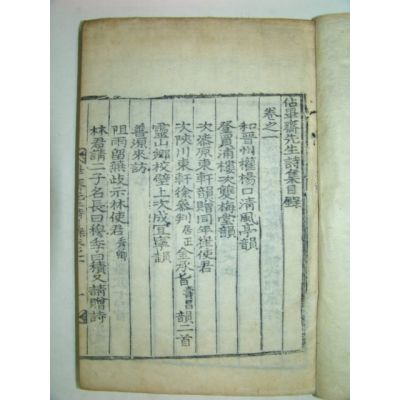 佔畢齋先生詩集目錄
卷之一
和晋州權場口清風亭韻
登買浦樓次雙梅堂韻
次漆原東軒韻贈同年崔使君
次陜川東軒徐參判居正金承旨壽昌韻二首
靈山鄕校壁上次成宜寧韻
善源來訪
阻雨留無
示林使君秀卿
林君請二子名長曰穆季曰積又請贈詩